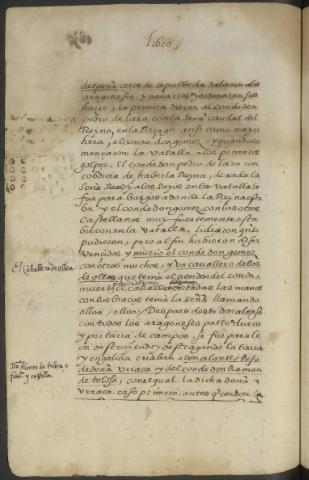 libro,
despues cerca de sepulveda salieron a los
aragoneses, y navarros y ordenaron sus
hazes, la primera dieron al conde don
pedro de lara, con la seña caudal del
Reyno, en la Rezaga ansi como mayor
hera, el conde don gomez, y quando co
mençaron la vatalla a los primeros
golpes, El conde don pedro de lara con
cobdicia de haber la Reyna, dexada la
seña Real y a los suyos en la vatalla se
fue para burgos adonde la Reyna esta
ba y el conde don gomez con los otros
castellanos muy fuertemente estu
bieron en la vatalla, lidiaron quanto
pudieron, pero al fin hubieron de ser
vencidos y murio el conde don gomez
con otros muchos, y un cavallero de los
de olloa que tenia el pendon del conde,
muerto el caballo cortadas las manos
con los braços tenia la seña llamando
olloa, olloa; Despues desto don alonso
con todos los aragoneses passo duero
y por tierra de campos, se fue para le
on destruyendo y estragando la tierra
en galicia criaban a don alonso hijo
de doña Urraca y del conde don Ramon
de tolosa, con el qual la dicha doña
Urraca caso primero, antes que con don
El caballero de olloa
Don Alonso
y castilla